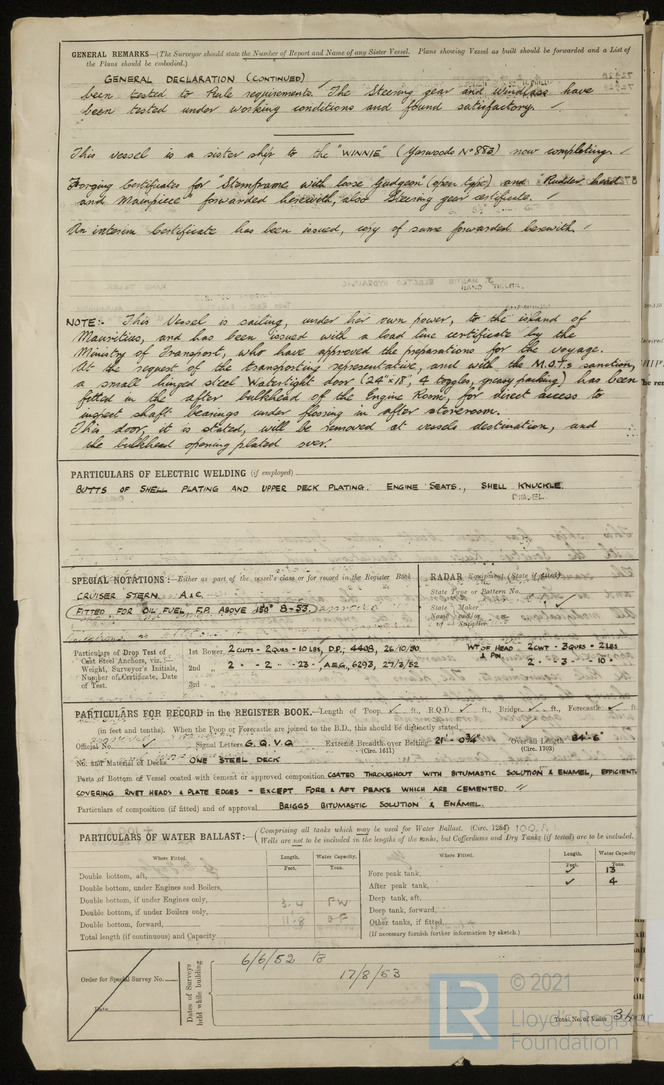 GENERAL REMARKS—(The Surveyor should state the Number of Report and Name of any Sister Vessel. Plans showing Vessel as built should be forwarded and a List of
the Plans should be embodied.)
GENERAL DECLARATION (CONTINUED)
been tested to Rule requirements. The Steering gear and Windlass have
been tested under working conditions and found satisfactory.
This vessel is a sister ship to the "WINNIE" (Yarwoods No 883) now completing.
Forging Certificates for "Sternframe with loose Gudgeon" (open type) and "Rudder head
and Mainpiece" forwarded herewith, also Steering gear certificate.
An interim Certificate has been issued, copy of same forwarded herewith.
NOTE:- This Vessel is sailing, under her own power, to the island of
Mauritius, and has been issued with a load line certificate by the
Ministry of Transport, who have approved the preparations for the voyage.
At the request of the transporting representative, and with the M.O.T.s sanction,
a small hinged steel Watertight door (24" x 18", 4 toggles, greasy packing) has been
fitted in the after bulkhead of the Engine Room, for direct access to
inspect shaft bearings under flooring in after storeroom.
This door, it is stated, will be removed at vessels destination, and
the bulkhead opening plated over.
PARTICULARS OF ELECTRIC WELDING (if employed)
BUTTS OF SHELL PLATING AND UPPER DECK PLATING. ENGINE SEATS., SHELL KNUCKLE.
SPECIAL NOTATIONS:—Either as part of the vessel's class or for record in the Register Book
CRUISER STERN. A.&C.
FITTED FOR OIL FUEL, F.P. ABOVE 150° 8-53
RADAR Equipment (State if fitted)
State Type or Pattern No.
State Maker
Name and/or
of Supplier
Particulars of Drop Test of
Cast Steel Anchors, viz.:—
Weight, Surveyor's Initials,
Number of Certificate, Date
of Test.
1st Bower 2 CWTS - 2 QRS - 10 LBS, D.P.; 4408, 26/10/50.
2nd " 2 - - 2 - - 23 - A.E.G., 6293, 27/3/52
3rd "
WT OF HEAD & PIN 2 CWT - 3 QRS - 2 LBS
2 - 3 - 10
PARTICULARS FOR RECORD in the REGISTER BOOK.—Length of Poop ✓ ft., R.Q.D. ✓ ft., Bridge ✓ ft., Forecastle ✓ ft.
(in feet and tenths). When the Poop or Forecastle are joined to the B.D., this should be distinctly stated
Official No. ✓ Signal Letters G.Q.V.Q Extreme Breadth over Belting 21' 0¾" Over-all Length 84'-6"
(Circ. 1611) (Circ. 1703)
No. and Material of Decks ONE STEEL DECK
Parts of Bottom of Vessel coated with cement or approved composition COATED THROUGHOUT WITH BITUMASTIC SOLUTION & ENAMEL, EFFICIENTLY
COVERING RIVET HEADS & PLATE EDGES - EXCEPT FORE & AFT PEAKS WHICH ARE CEMENTED.
Particulars of composition (if fitted) and of approval BRIGGS BITUMASTIC SOLUTION & ENAMEL.
PARTICULARS OF WATER BALLAST:—
Comprising all tanks which may be used for Water Ballast. (Circ. 1284)
Wells are not to be included in the lengths of the tanks, but Cofferdams and Dry Tanks (if tested) are to be included.
Where Fitted. Length. Water Capacity. Where Fitted. Length. Water Capacity
Feet. Tons. Feet. Tons.
Double bottom, aft, Fore peak tank, ✓ 13
Double bottom, under Engines and Boilers, After peak tank, ✓ 4
Double bottom, if under Engines only, Deep tank, aft,
Double bottom, if under Boilers only, Deep tank, forward,
Double bottom, forward, Other tanks, if fitted,
Total length (if continuous) and Capacity (If necessary furnish further information by sketch.)
Order for Special Survey No.
Date
Dates of Surveys
held while building
6/6/52 to
17/8/53
Total No. of Visits 34
LR
© 2021
Lloyd's Register
Foundation